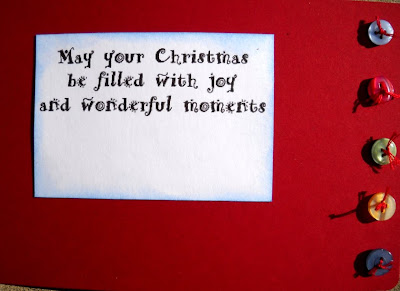 May your Christmas
be filled with joy
and wonderful moments